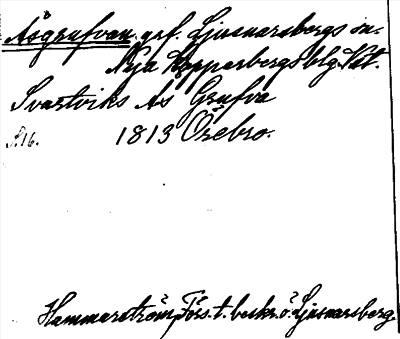 Åsgrufvan. grf. Ljusnarsbergs sn.
Nya Kopparbergs blg. Vst.
Svartviks Ås Grufva
S. 16. 1813 Örebro.
Hammarström, Förs. t. beskr. ö. Ljusnarsberg.